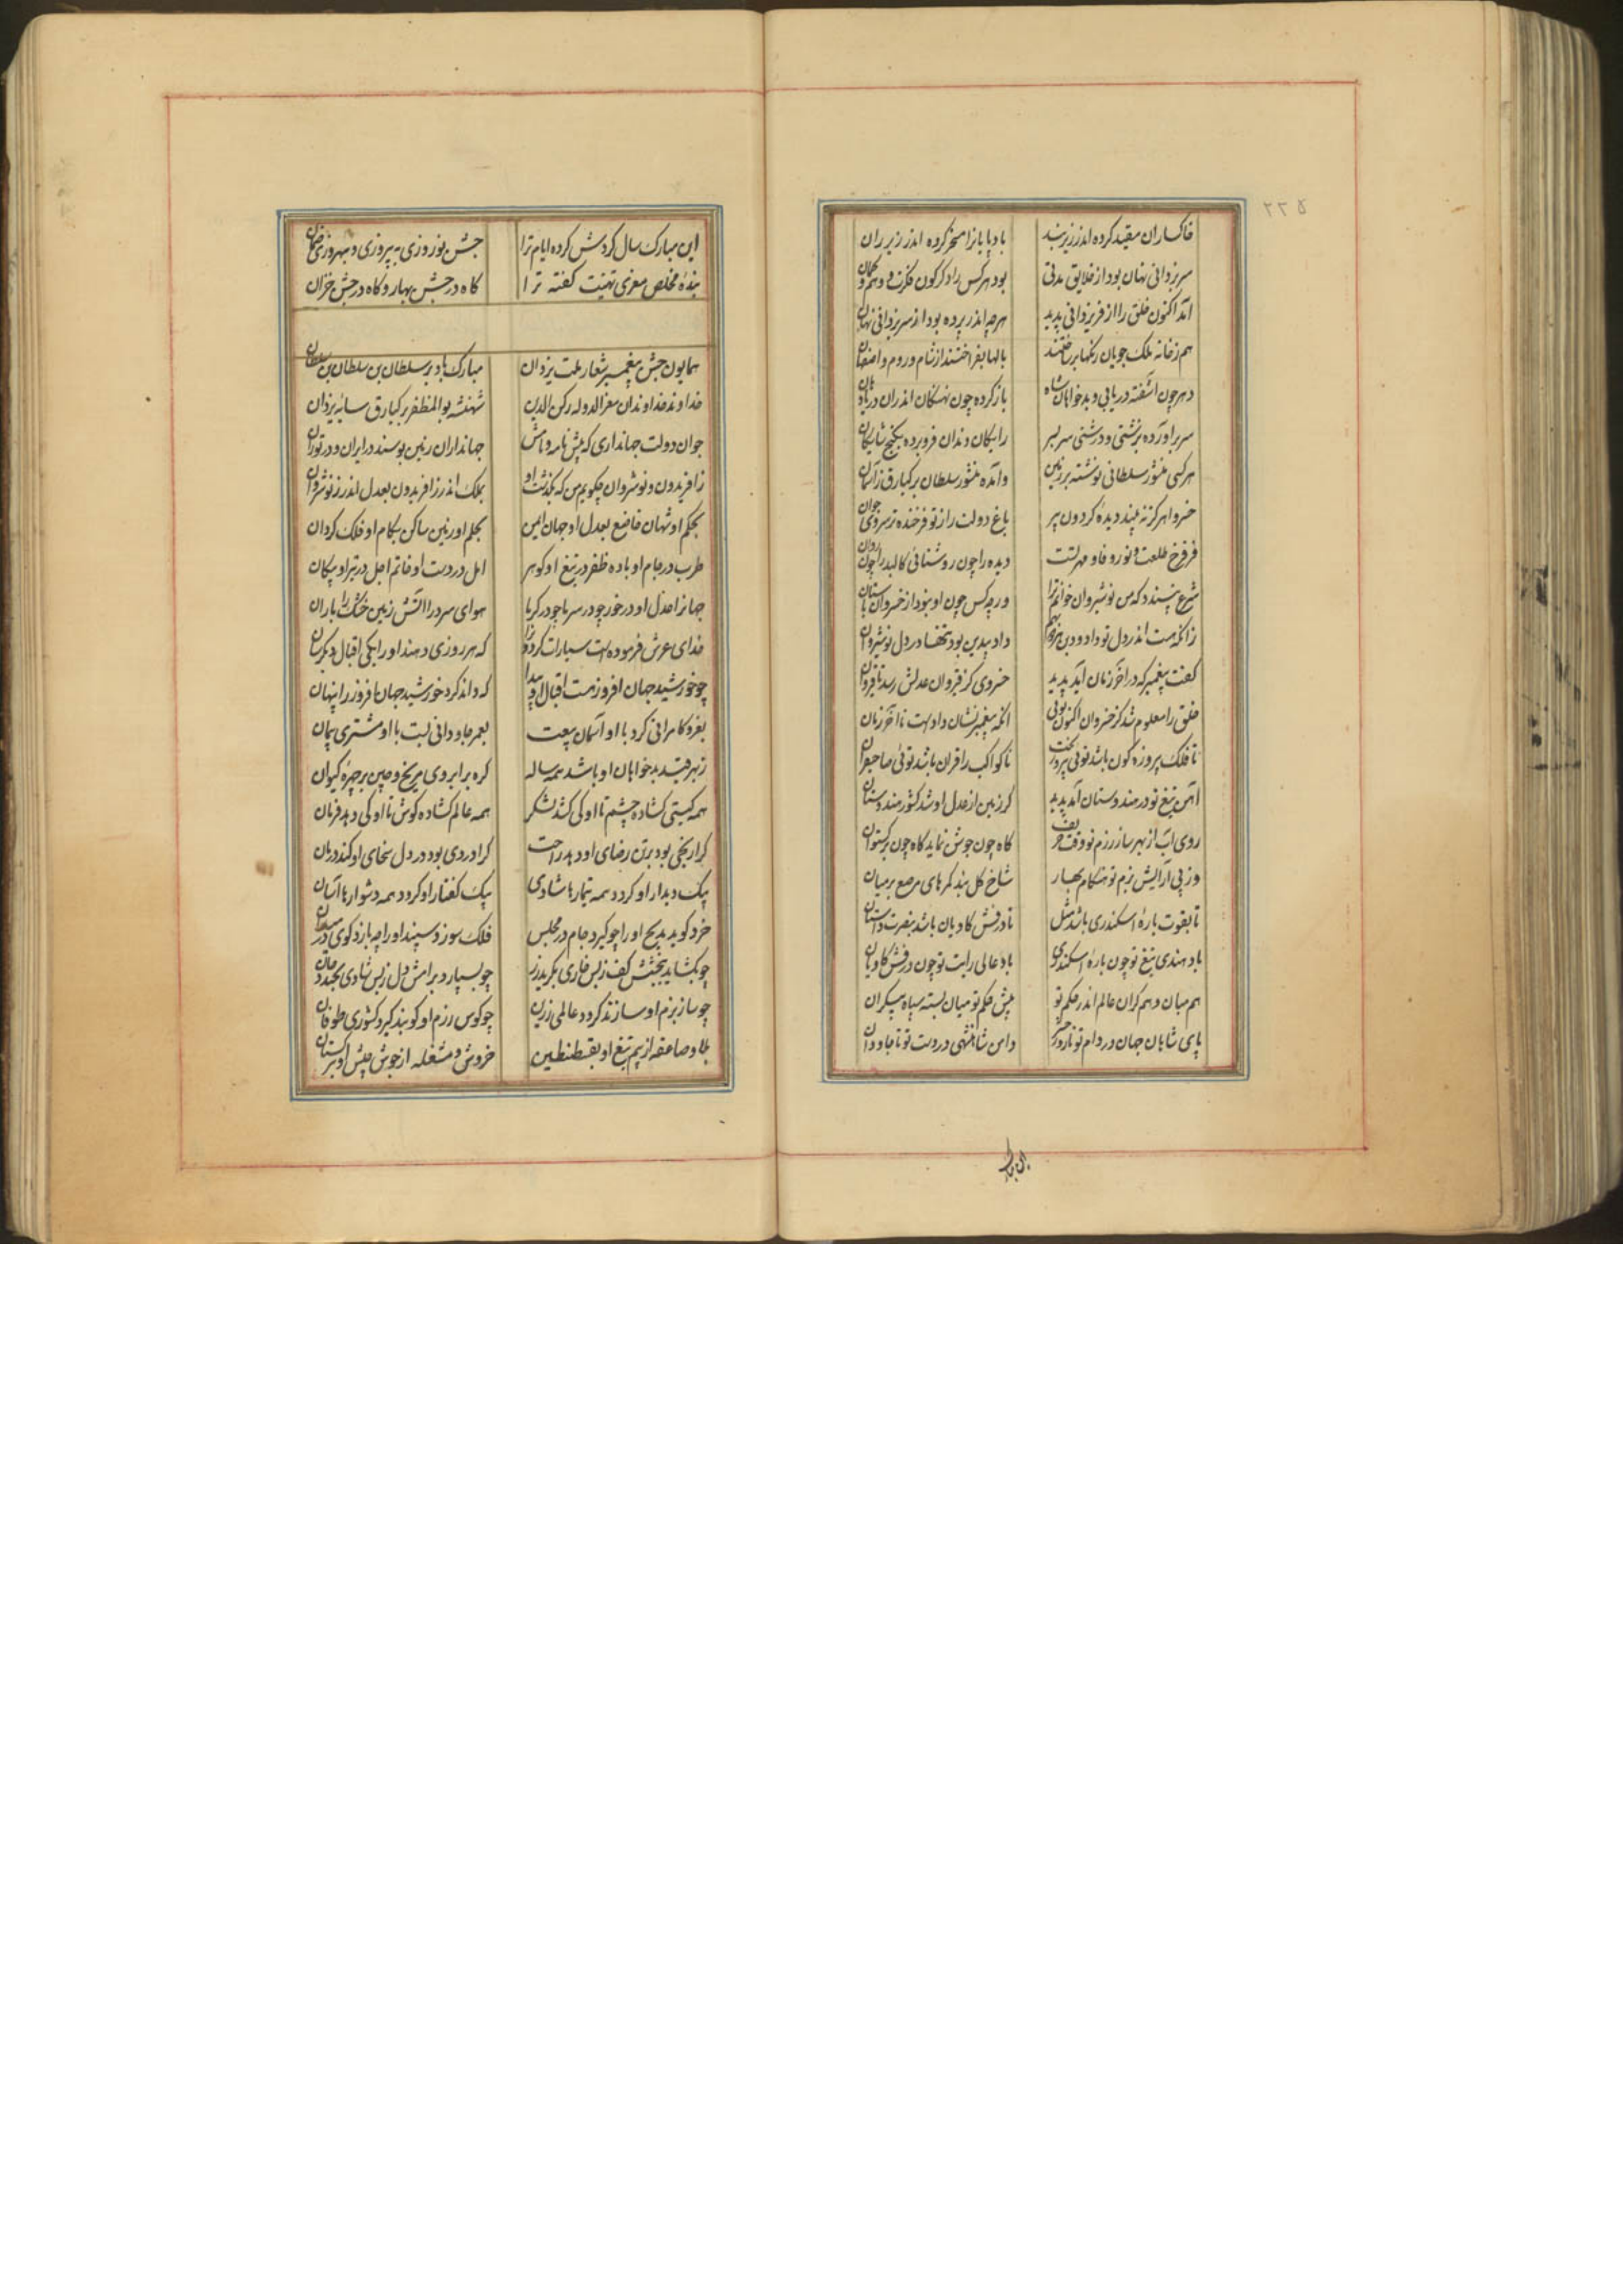 ۲۲۵
خاکساران مقید کرده اندر زیر بند بادپایان را مسخر کرده اندر زیر ران
سر یزدانی نهان بود از خلایق مدتی بود هر کس را دگرگون فکرت و وهم و گمان
آمد اکنون خلق را از فر یزدانی پدید هرچه اندر پرده بود از سر یزدانی نهان
هم زخانه ملک جویان رنگها برساختند بالها بفراختند از شام و روم و اصفهان
دهر چون آشفته دریایی و بدخواهان شاه باز کرده چون نهنگان اندران دریا دهان
سر برآورده بزشتی و درشتی سر بسر رایگان دندان فرو برده بگنج شایگان
هر کسی منشور سلطانی نوشته بر زمین وآمده منشور سلطان برکیارق زآسمان
خسروا هرگز نه بیند دیده گردون پیر باغ دولت را ز تو فرخنده تر سروی جوان
فر فرخ طلعت و نور و فا و مهر تست دیده را چون روشنائی کالبد را چون روان
شرع نپسندد که من نوشیروان خوانم ترا ورچه کس چون او نبود از خسروان باستان
زانکه هست اندر دل تو داد و دین هر دو بهم داد بیدین بود تنها در دل نوشیروان
گفت پیغمبر که در آخر زمان آید پدید خسروی کز قیروان عدلش رسد تا قیروان
خلق را معلوم شد کز خسروان اکنون توئی آنکه پیغمبر نشان دادست تا آخر زمان
تا فلک پیروزه گون باشد توئی پیروز بخت تا کواکب را قران باشد توئی صاحبقران
آهن تیغ تو در هندوستان آمد پدید گر زمین از عدل او شد کشور هندوستان
روی آب از بهر ساز رزم تو وقت خریف گاه چون جوشن نماید گاه چون برگستوان
وز پی آرایش بزم تو هنگام بهار شاخ گل بندد کمرهای مرصع بر میان
تا بقوت باره اسکندری باشد مثل تا درفش کاویان باشد بنصرت داستان
باد هندی تیغ تو چون باره اسکندری باد عالی رایت تو چون درفش کاویان
هم میان و هم کران عالم اندر حکم تو پیش حکم تو میان بسته سپاه بیکران
پای شاهان جهان در دام تو تا روز حشر دامن شاهنشهی در دست تو تا جاودان
این مبارک
این مبارک سال گردش کرده ایام ترا جشن نوروزی به پیروزی و بهروزی ضمان
بنده مخلص معزی تهنیت گفته ترا گاه در جشن بهار و گاه در جشن خزان
همایون جشن پیغمبر شعار ملت یزدان مبارک باد بر سلطان بن سلطان بن سلطان
خداوند خداوندان معز الدوله رکن الدین شهنشه بوالمظفر برکیارق سایه یزدان
جوان دولت جهانداری که پیش نامه و نامش جهانداران زمین بوسند در ایران و در توران
ز افریدون و نوشروان چگویم من که بگذشت او بملک اندر ز افریدون بعدل اندر ز نوشروان
بحکم او شهان خاضع بعدل او جهان ایمن بحلم او زمین ساکن بکام او فلک گردان
طرب در جام او باده ظفر در تیغ او گوهر امل در دست او خاتم اجل در تیر او پیکان
جهانرا عدل او در خور چو در سرما چو در گرما هوای سرد را آتش زمین خشک را باران
خدای عرش فرموده است سیارات گردون را که هر روزی دهند او را یکی اقبال دیگرسان
چو خورشید جهان افروز هست اقبال او پیدا که داند کرد خورشید جهان افروز را پنهان
بعز و کامرانی کرد با او آسمان بیعت بعمر جاودانی بست با او مشتری پیمان
ز بهر قید بدخواهان او باشد همه ساله گره بر ابروی مریخ و چین بر چهره کیوان
همه گیتی گشاده چشم تا او کی کشد لشکر همه عالم گشاده گوش تا او کی دهد فرمان
کرا رنجی بود بر تن رضای او دهد راحت کرا دردی بود در دل سخای او کند درمان
بیک دیدار او گردد همه تیمارها شادی بیک گفتار او گردد همه دشوارها آسان
خرد گوید مدیح او را چو گیرد جام در مجلس فلک سوزد سپند او را چو بازد گوی در میدان
چو بگشاید ببخشش کف ز بس خاری بگرید زر چو بسپارد برامش دل ز بس شادی بخندد جان
چو ساز بزم او سازند گردد عالمی زرین چو کوس رزم او کوبند گیرد کشوری طوفان
بلا و صاعقه از بیم تیغ او بقسطنطین خروش و مشغله از جوش جیش او